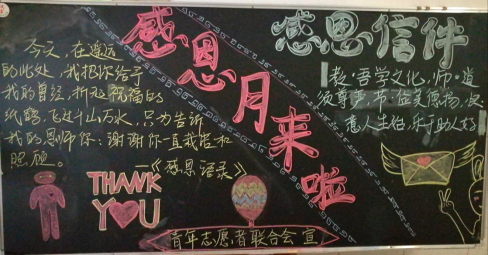 感恩月来啦
感恩信件
今天，在遥远
的此处，我把你给予
我的曾经，折和祝福的
纸鹤，飞过千山万水，只为告诉
我的恩师你：谢谢你一直我
照顾。
—《感恩语录》
教·吾学文化，师·道
须尊严，节·征美德物，
人生伯，乐于助人
THANK
YOU
青年志愿者联合会 宣